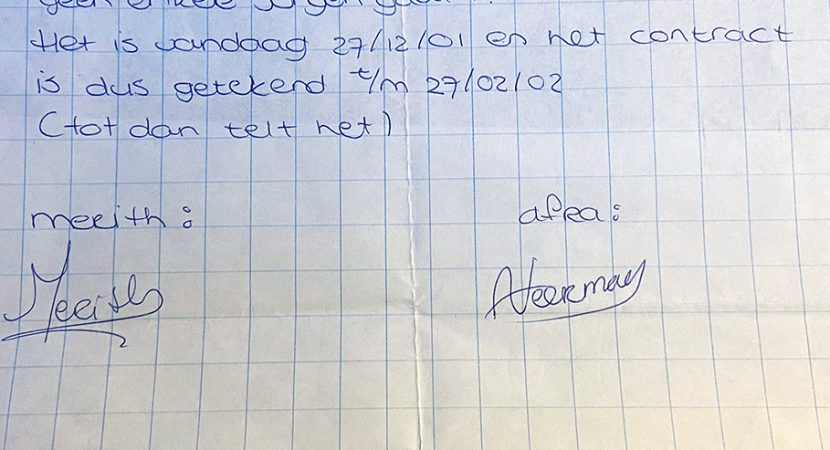 Het is vandaag 27/12/01 en het contract
is dus getekend t/m 27/02/02
(tot dan telt het)
meeith: afka:
Meeith